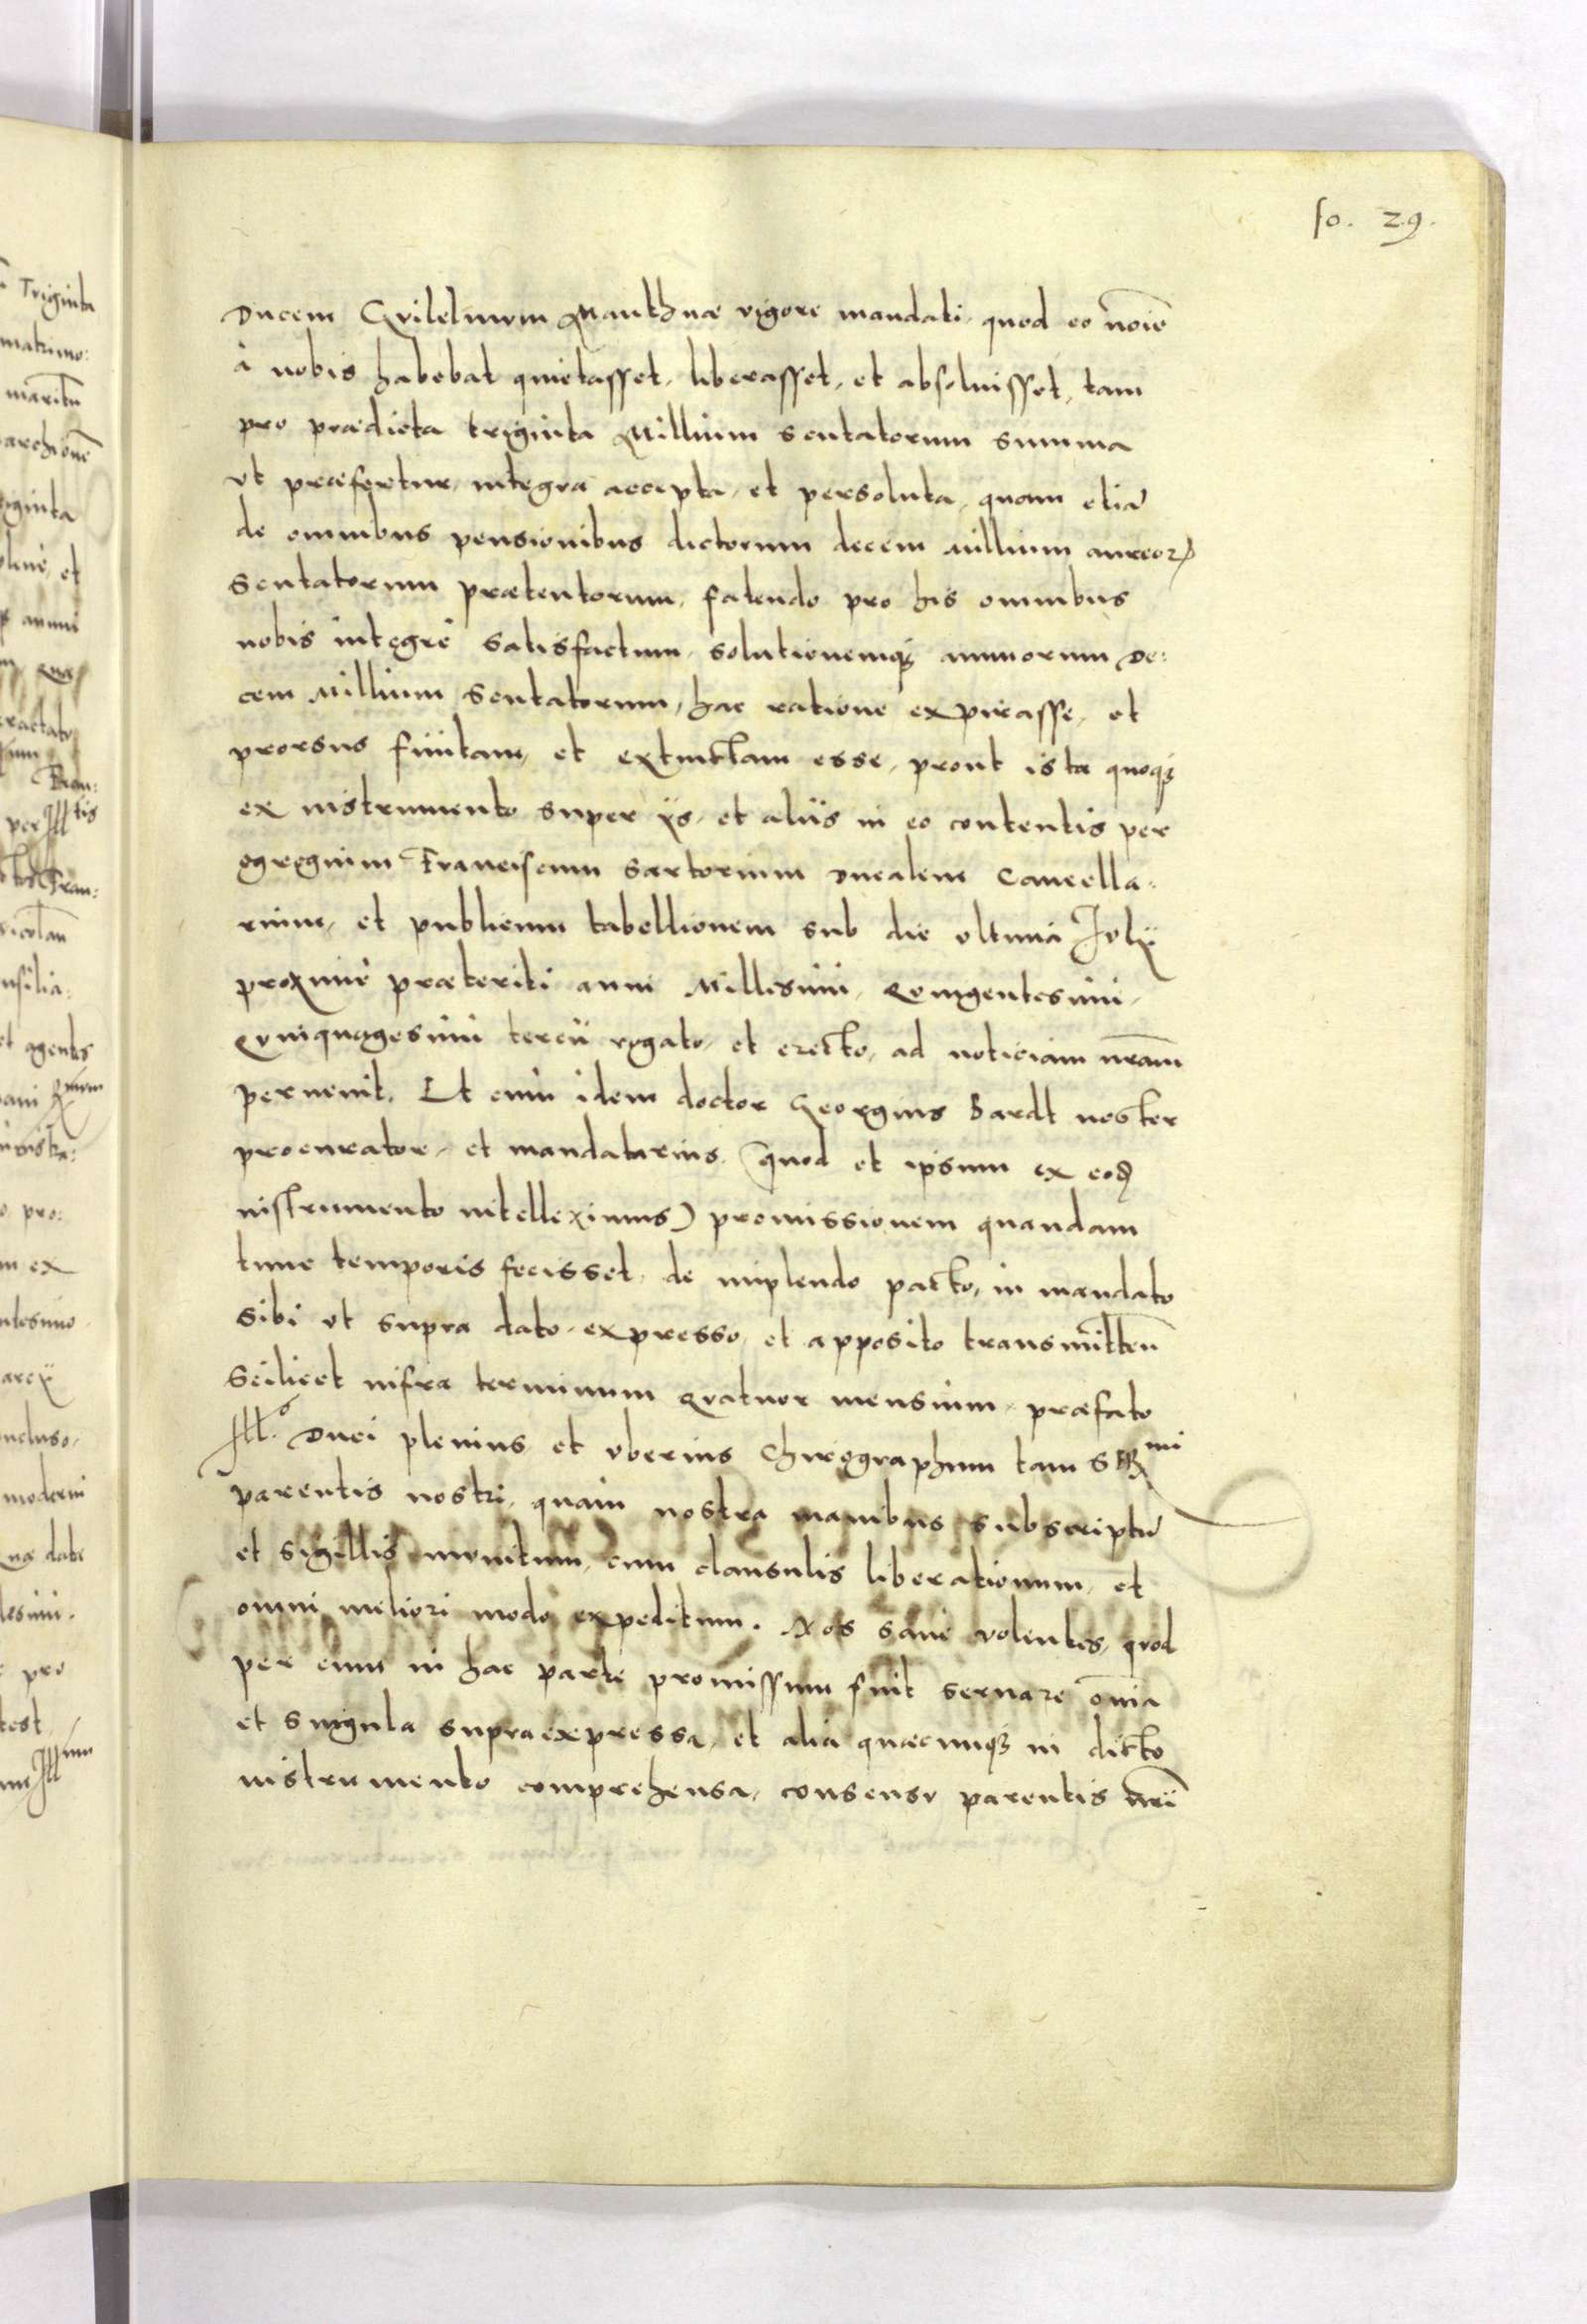 fo. 29.
Ducem Gvilelmum Manthuæ vigore mandati, quod eo noīe
à nobis habebat quietasset, liberasset, et absoluisset, tam
pro prædicta triginta Millium scutatorum summa
vt præfertur, integra accepta, et persoluta, quam etiā
de omnibus pensionibus dictorum decem millium aureorꝝ
scutatorum prætentorum, fatendo pro his omnibus
nobis integrè satisfactum, solutionemqꝫ annuorum De:
cem Millium scutatorum, hac ratione expirasse, et
prorsus finitam, et extinctam esse, prout ista quoqꝫ
ex instrumento super ijs, et aliis in eo contentis per
egregium Franciscum Sartorium Ducalem Cancella:
rium, et publicum tabellionem sub die vltima Julij
proximè præteriti anni Millesimi, Qvingentesimi,
Qvinquagesimi tercii rogato, et erecto, ad noticiam nr̄am
peruenit. Et cum idem doctor Georgius Bardt noster
procurator, et mandatarius. (quod et ipsum ex eod
instrumento intelleximus) promissionem quandam
tunc temporis fecisset, de implendo pacto, in mandato
sibi vt supra dato, expresso, et apposito transmitten̄
scilicet infra terminum Qvatuor mensium, præfato
Ill.º Duci plenius et vberius Chirographum tam SR.mi
parentis nostri, quam nostra manibus subscriptū
et sigillis munitum, cum clausulis liberationum, et
omni meliori modo expeditum. Nos sanè volentes, quod
per eum in hac parte promissum fuit seruare om̄ia
et singula supraexpressa, et alia quæcunqꝫ in dicto
instrumento comprehensa, consensv parentis nr̄i